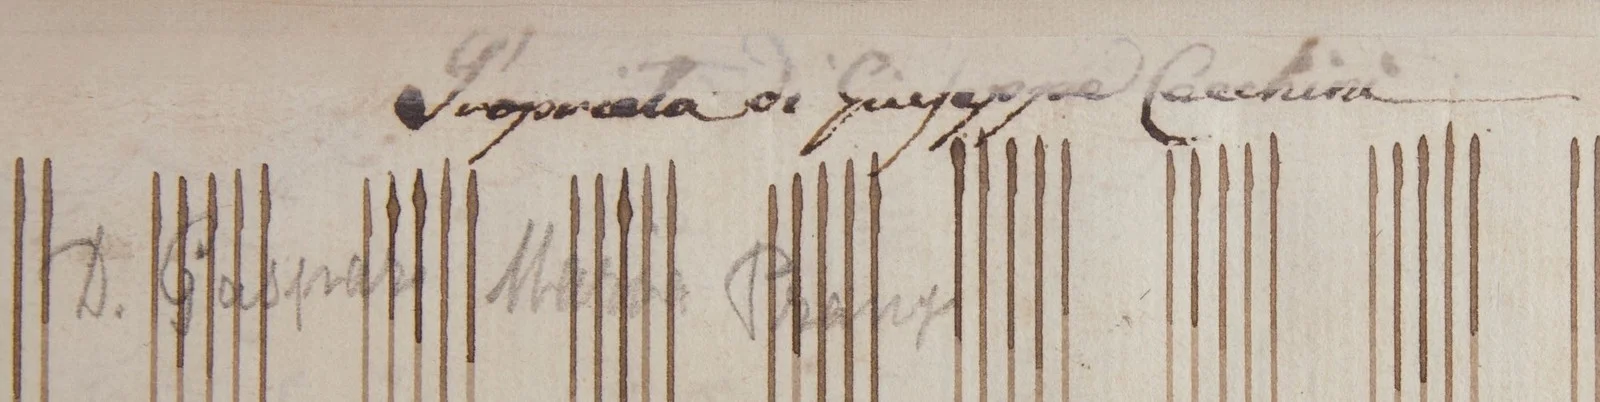 Proprietà di Giuseppe Cecchini
D. Gaspar Maria